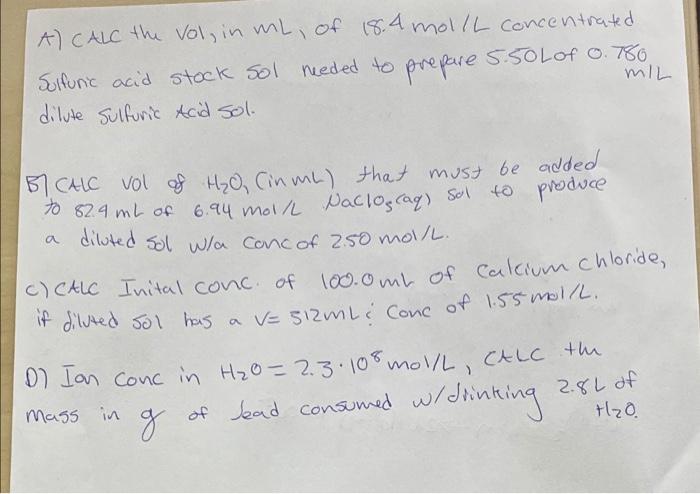 A) CALC the Vol, in mL, of 18.4 mol/L concentrated
Sulfuric acid stock Sol needed to prepare 5.50L of 0.780
m/L
dilute Sulfuric Acid Sol.
B) CALC vol of H2O, (in mL) that must be added
to 82.4 mL of 6.94 mol/L NaClO3(aq) Sol to produce
a diluted sol w/a conc of 2.50 mol/L.
C) CALC Inital conc. of 100.0 mL of Calcium chloride,
if diluted sol has a V= 512mL & Conc of 1.55 mol/L.
D) Ion conc in H2O = 2.3·10⁸ mol/L, CALC the
mass in g of lead consumed w/drinking 2.8L of
H2O.